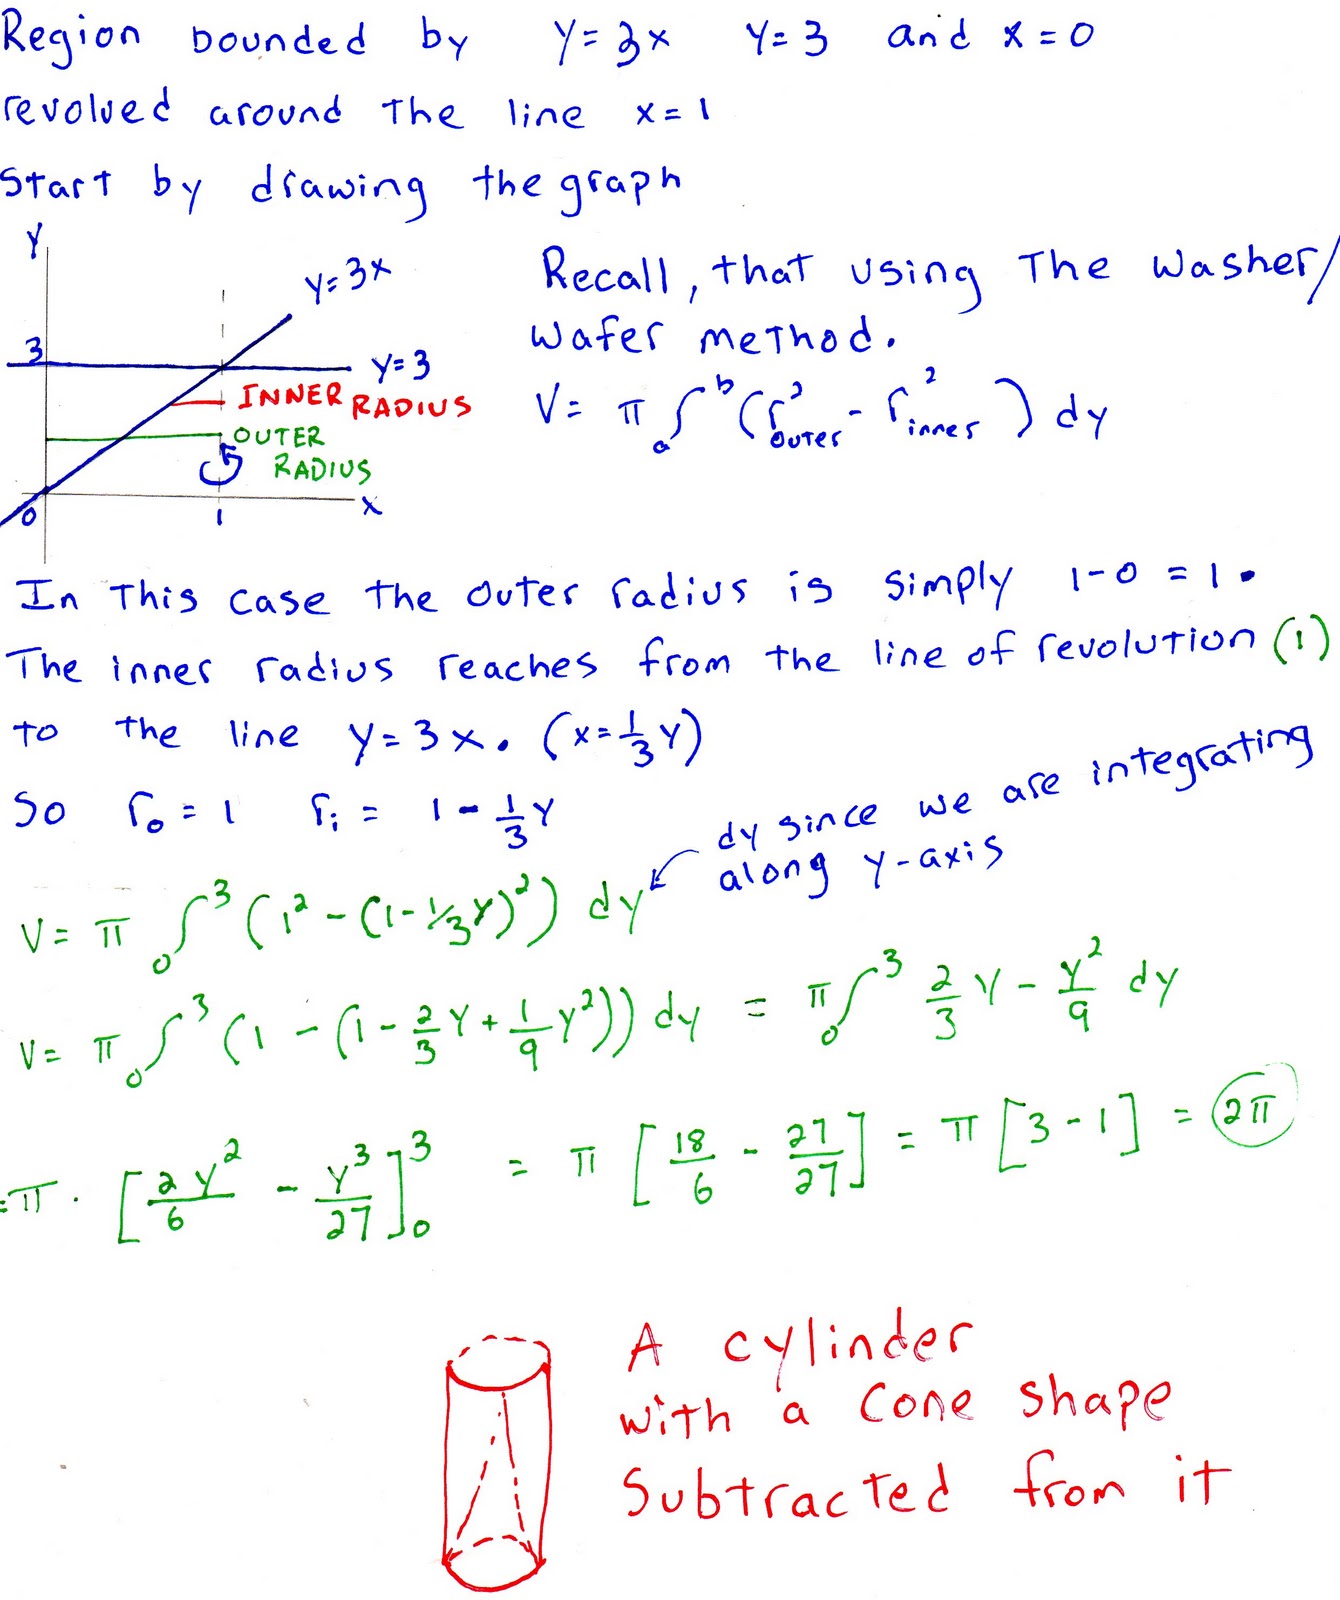 Region bounded by y=3x y=3 and x=0
revolved around the line x=1
Start by drawing the graph
Y
y=3x
3
y=3
INNER RADIUS
OUTER
RADIUS
0
1
x
Recall, that using The washer/
wafer method.
V= π ₐ∫ᵇ (r²outer - r²inner) dy
In this case the outer radius is simply 1-0 = 1.
The inner radius reaches from the line of revolution (1)
to the line y=3x. (x=1/3 y)
So r₀ = 1 rᵢ = 1 - 1/3 y
dy since we are integrating
along y-axis
V= π ₀∫³ (1² - (1-1/3y)²) dy
V= π ₀∫³ (1 - (1 - 2/3 y + 1/9 y²)) dy = π ₀∫³ 2/3 y - y²/9 dy
=π · [2y²/6 - y³/27]₀³ = π [18/6 - 27/27] = π [3-1] = 2π
A cylinder
with a cone shape
Subtracted from it